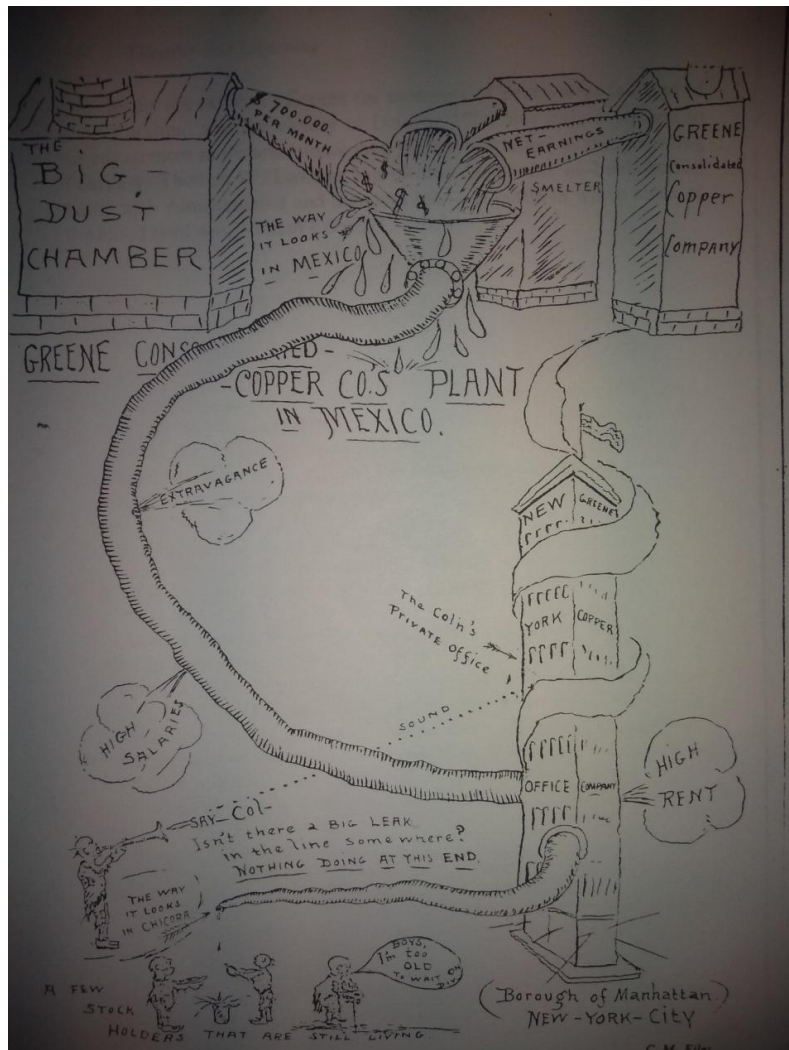 THE
BIG-
DUST
CHAMBER
$700,000.
PER MONTH
NET-
EARNINGS
SMELTER
GREENE
Consolidated
Copper
Company
$
$
$
$
THE WAY
IT LOOKS
IN MEXICO
GREENE CONSO
ED-
-COPPER CO'S PLANT
IN MEXICO.
EXTRAVAGANCE
HIGH
SALARIES
The Coln's
Private Office
SOUND
NEW
GREENE
YORK
COPPER
OFFICE
COMPANY
HIGH
RENT
SAY-Col-
Isn't there a BIG LEAK
in the line somewhere?
NOTHING DOING AT THIS END.
THE WAY
IT LOOKS
IN CHICORA
BOYS,
I'm too
OLD
TO WAIT ON
A FEW
STOCK
HOLDERS THAT ARE STILL LIVING.
(Borough of Manhattan.)
NEW-YORK-City
C. M.